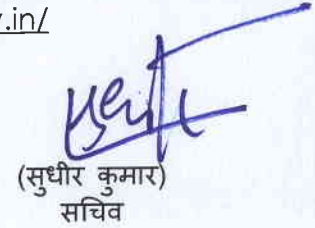 .in/
(सुधीर कुमार)
सचिव